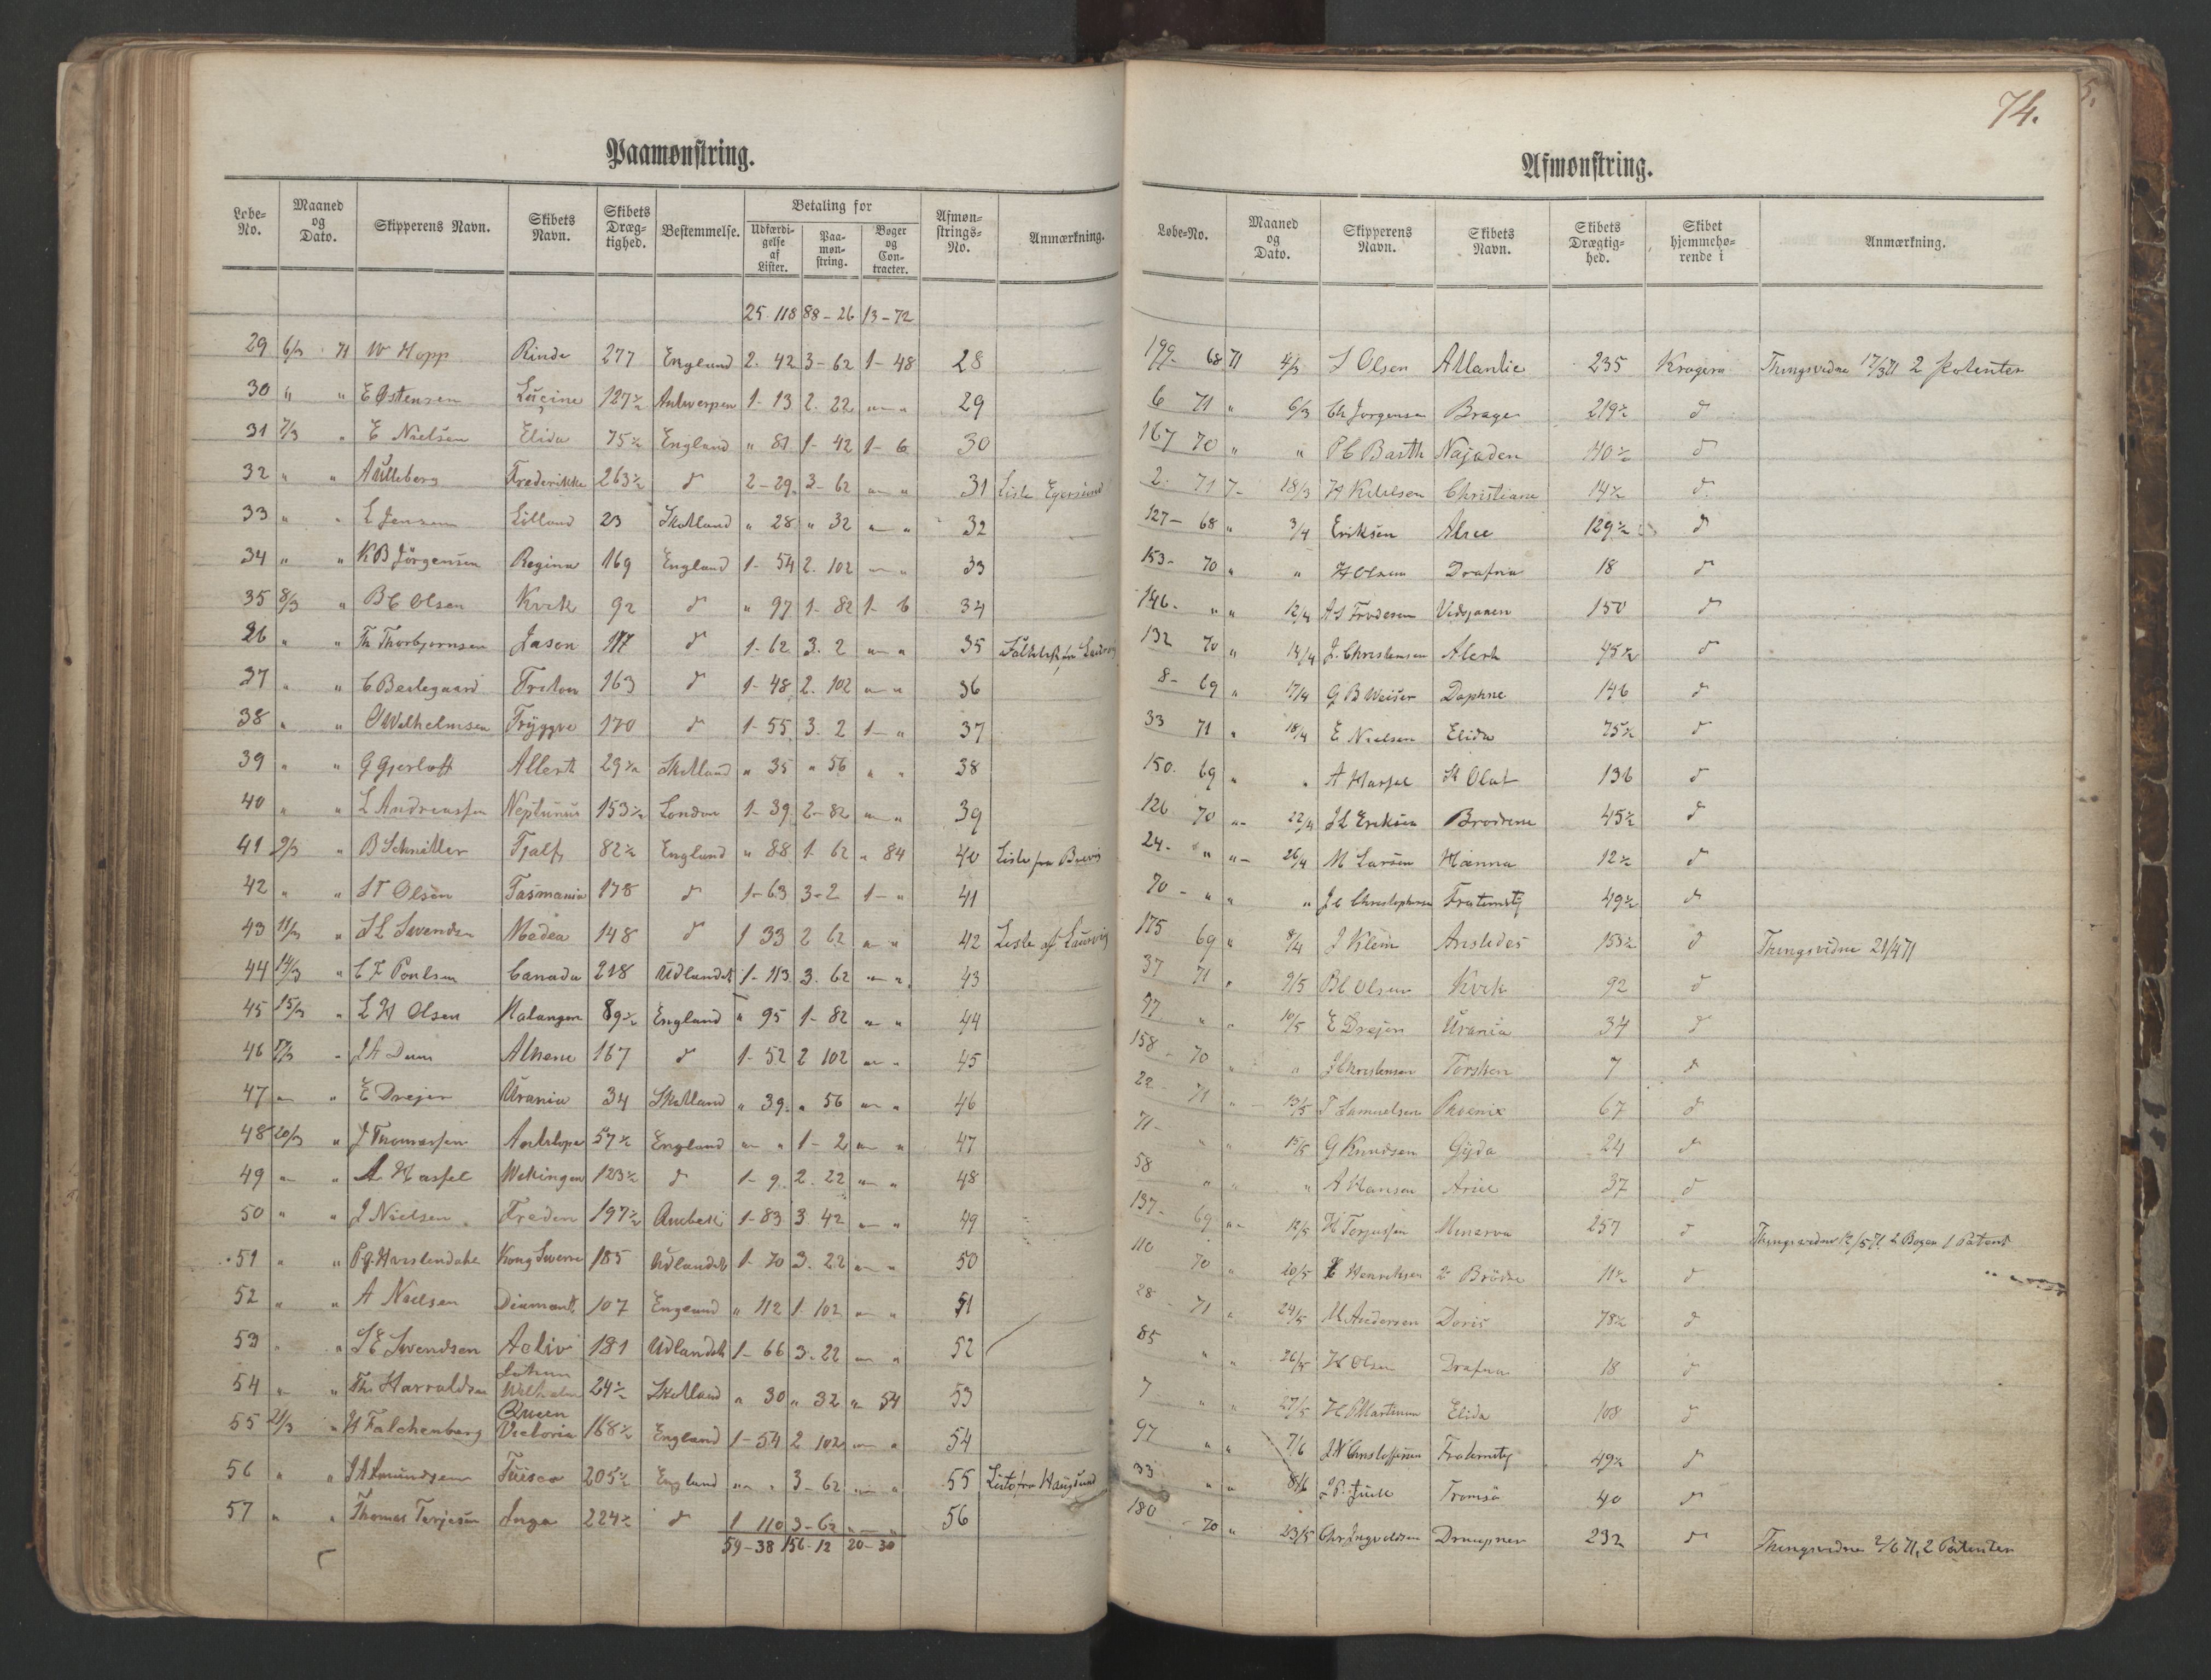 74.
Paamønstring.
Løbe-No. Maaned og Dato. Skipperens Navn. Skibets Navn. Skibets Dræg-tighed. Bestemmelse. Betaling for Udfærdi-gelse af Lister. Paa-møn-string. Bøger og Con-tracter. Afmøn-strings-No. Anmærkning.
25 118 88-26 13-72
29 6/3 71 W Hopp Rinda 277 England 2. 42 3-62 1-48 28
30 " " E Østensen Lucine 127½ Antwerpen 1-13 2. 22 " " 29
31 7/3 " E Nielsen Elida 75½ England " 81 1-42 1-6 30
32 " " Aulleberg Frederikke 263½ d 2-29 3-62 " " 31 Liste Egersund
33 " " L Jensen Lilland 23 Skotland " 28 " 32 " " 32
34 " " K B Jörgensen Regina 169 England 1-54 2. 102 " " 33
35 8/3 " B C Olsen Kvik 92 d " 97 1-82 1-6 34
36 " " Th Thorbjornsen Jason 117 d 1-62 3. 2 " " 35
37 " " C Beilegaard Triton 163 d 1-48 2. 102 " " 36
38 " " O Wilhelmsen Tryggve 170 d 1-55 3. 2 1- " 37
39 " " G Gjerloff Allert 29½ Skotland " 35 " 56 " " 38
40 " " L Andreassen Neptunus 153½ London 1-39 2-82 " " 39
41 9/3 " B Schnitler Tjalfe 82½ England " 88 1-62 " 84 40 Liste fra Brevig
42 " " S T Olsen Tasmania 178 d 1-63 3-2 1- " 41
43 11/3 " S L Svendsen Medea 148 d 1 33 2 62 " " 42 Liste af Laurvig
44 14/3 " C F Poulsen Canada 218 Udlandet 1-113 3. 62 " " 43
45 15/3 " L H Olsen Malangen 89½ England " 95 1-82 " " 44
46 17/3 " J A Dum Alkene 167 d 1-52 2 102 " " 45
47 " " E Drejer Urania 34 Skotland " 39 " 56 " " 46
48 20/3 " J Thomassen Antelope 57½ England " " 1-2 " " 47
49 " " A Hassel Wikingen 123½ d 1-9 2. 22 " " 48
50 " " J Nielsen Freden 197½ 1-83 3. 42 " " 49
51 " " P G Harslendahl Kong Sverre 185 Udlandet 1-70 3. 22 " " 50
52 " " A Nielsen Diamant 107 England " 112 1. 102 " " 51
53 " " S E Svendsen Activ 181 Udlandet 1-66 3-22 " " 52
54 " " Th Harraldsen Johan Wilhelm 24½ Skotland " 30 " 32 " 54 53
55 21/3 " H Falchenberg Queen Victoria 168½ England 1-54 2 102 " " 54
56 " " J A Amundsen Tuisco 205½ England " " 3-62 " " 55 Liste fra Haugsund
57 " " Thomas Terjesen Inga 224½ d 1 110 3-62 " " 56
59-38 156-12 20-30
Afmønstring.
Løbe-No. Maaned og Dato. Skipperens Navn. Skibets Navn. Skibets Drægtig-hed. Skibet hjemmehø-rende i Anmærkning.
199- 68 71 4/3 S Olsen Atlantic 235 Kragerø Thingsvidne 17/3 71 2 Patenter
6 71 " 6/3 Ch Jorgensen Brage 219½ d
167 70 " " P C Barth Najaden 40½ d
2. 71 7- 18/3 H Kittelsen Christiane 14½ d
127- 68 " 3/4 Eriksen Alree 129½ d
153- 70 " " H Olsen Drafna 18 d
146- " " 12/4 A S Frodesen 150 d
132 70 " 14/4 J. Christensen Alert 45½ d
8- 69 " 17/4 G B Weiser Daphne 146 d
33 71 " 18/4 E Nielsen Elida 75½ d
150. 69 " " A Hassel St Olaf 136 d
126 70 " 22/4 J L Eriksen Brodrene 45½ d
24- " " 26/4 M Larsen Hanna 12½ d
70- " " " J C Christophersen Fraternity 49½ d
175 69 " 8/4 J Klem Aristides 153½ d Thingsvidne 21/4 71
37 71 " 9/5 B C Olsen Kvik 92 d
97 " " 10/5 E Drejer Urania 34 d
158- 70 " " J Christensen Torsken 7 d
22- 71 " 13/5 T Samuelsen Phoenix 67 d
71- " " 15/5 G Knudsen Gyda 24 d
58 " " " A Hansen Ariel 37 d
137- 69 " 12/5 H Terjessen Minerva 257 d Thingsvidne 12/5 71. 2 Bogen 1 Patent
110 70 " 20/5 E Henriksen 2 Brödre 11½ d
28- 71 " 24/5 M Andersen Doris 78½ d
85 " " 26/5 H Olsen Drafna 18 d
7 " " 27/5 H P Martinsen Elida 108 d
97 " " 7/6 Fraternity 49½ d
33 " " 8/6 J P Juell Tromsø 40 d
180 70 " 23/5 Chr Ingvaldsen Draupner 232 d Thingsvidne 2/6 71, 2 Patenter